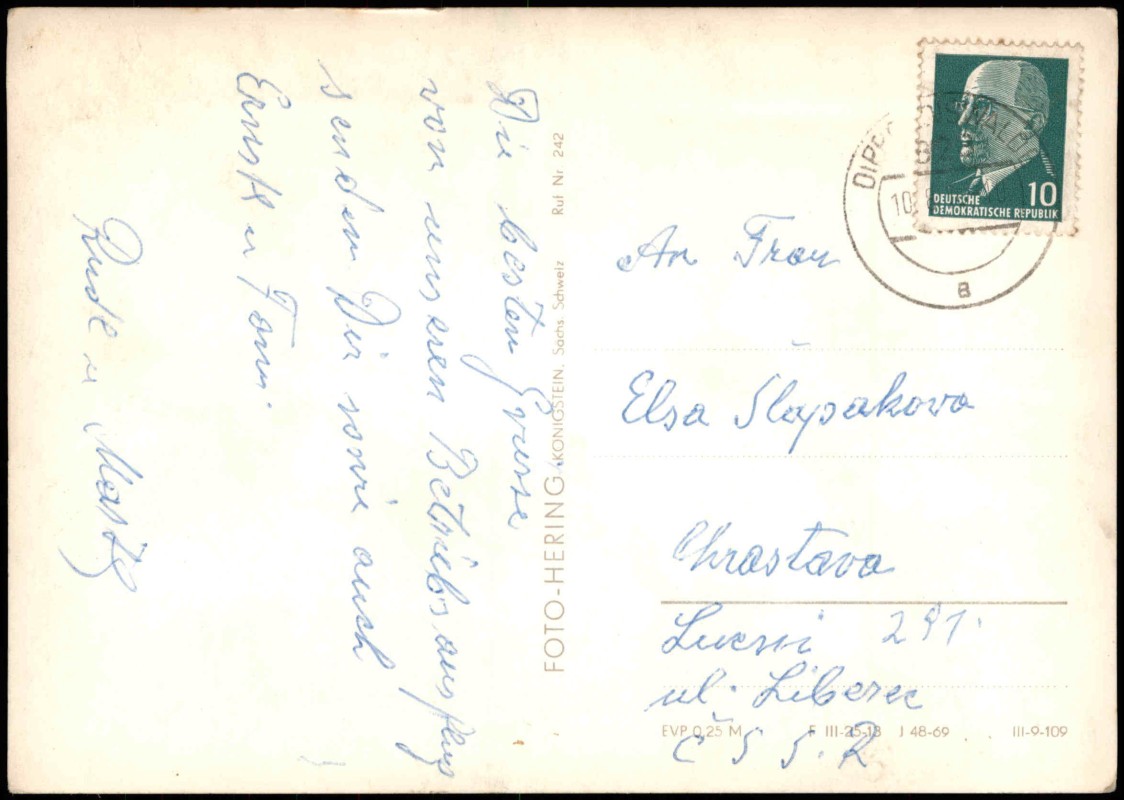 Die besten Grüsse
von unseren Betriebsausflug
senden Dir sowie auch
Ernst u Tomi.
Rudl u
FOTO-HERING, KÖNIGSTEIN, Sächs. Schweiz Ruf Nr 242
DEUTSCHE
DEMOKRATISCHE REPUBLIK
10
a
An Frau
Elsa Slapakova
Chrastava
291.
ul. Liberec
ČSSR
EVP 0,25 M F III-25-13 J 48-69 III-9-109